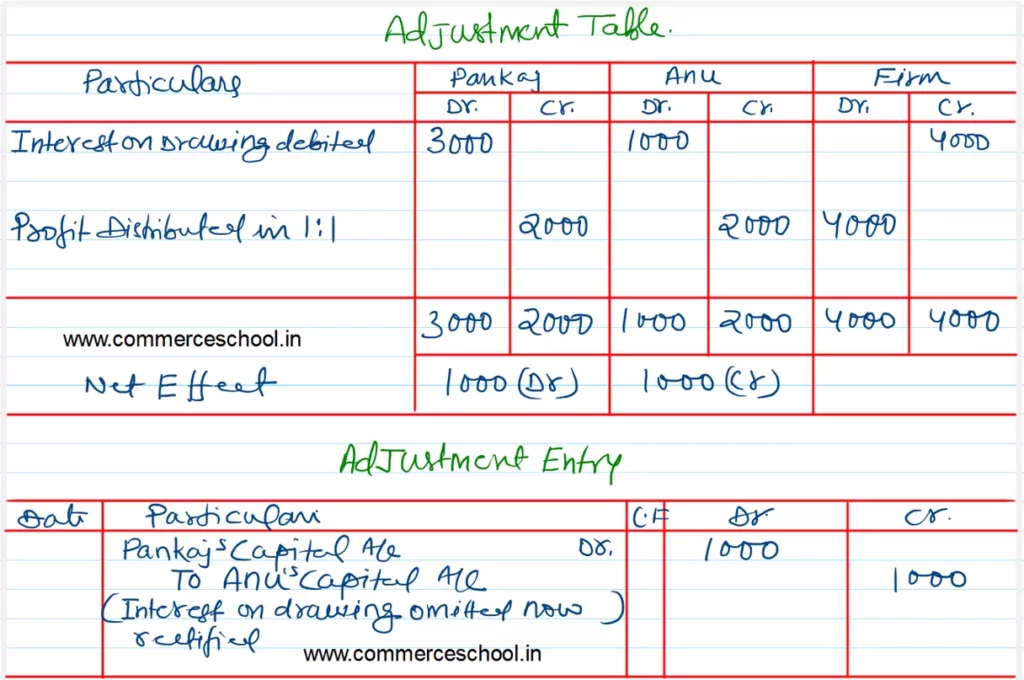 Adjustment Table.
Particulars Pankaj Anu Firm
Dr. Cr. Dr. Cr. Dr. Cr.
Interest on Drawing debited 3000 1000 4000
Profit Distributed in 1:1 2000 2000 4000
www.commerceschool.in 3000 2000 1000 2000 4000 4000
Net Effect 1000 (Dr) 1000 (Cr)
Adjustment Entry
Date Particulars L.F Dr Cr.
Pankaj's Capital A/c Dr. 1000
To Anu's Capital A/c 1000
(Interest on drawing omitted now
rectified)
www.commerceschool.in